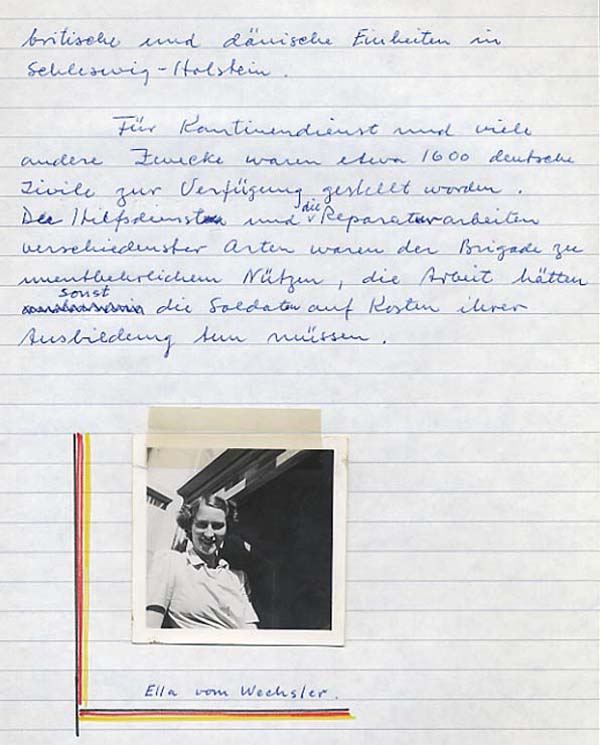 britische und dänische Einheiten in
Schleswig-Holstein.
Für Kantinendienst und viele
andere Zwecke waren etwa 1600 deutsche
Zivile zur Verfügung gestellt worden.
Der Hilfsdienst und die Reparaturarbeiten
verschiedenster Arten waren der Brigade zu
unentbehrlichem Nützen, die Arbeit hätten
sonst die Soldaten auf Kosten ihrer
Ausbildung tun müssen.
Ella vom Wechsler.